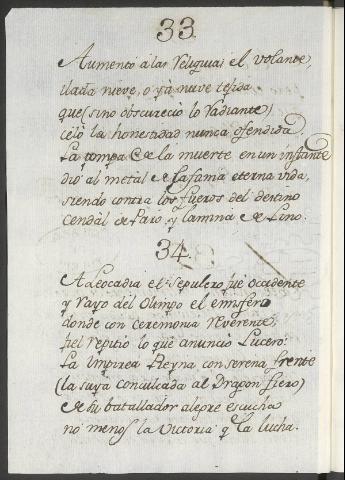 33.
Aumentó à las Reliquias el volante,
ilada nieve, o ya nuve tejida
que (sino obscureció lo radiante)
celó la honestidad nunca ofendida.
La trompa de la muerte en un instante
dió al metal de la fama eterna vida,
siendo contra los fueros del destino
Cendàl de Paro, y lamina de Lino.
34.
A Leocadia el Sepulcro fué Occidente
y rayo del Olimpo el emisfero
donde con ceremonia reverente,
fiel repitio lo que anuncio Lucero:
La impirea Reyna con serena frente
(la suya conculcada al Dragon fiero)
de su batallador alegre escucha
no menos la Victoria q̃ la lucha.